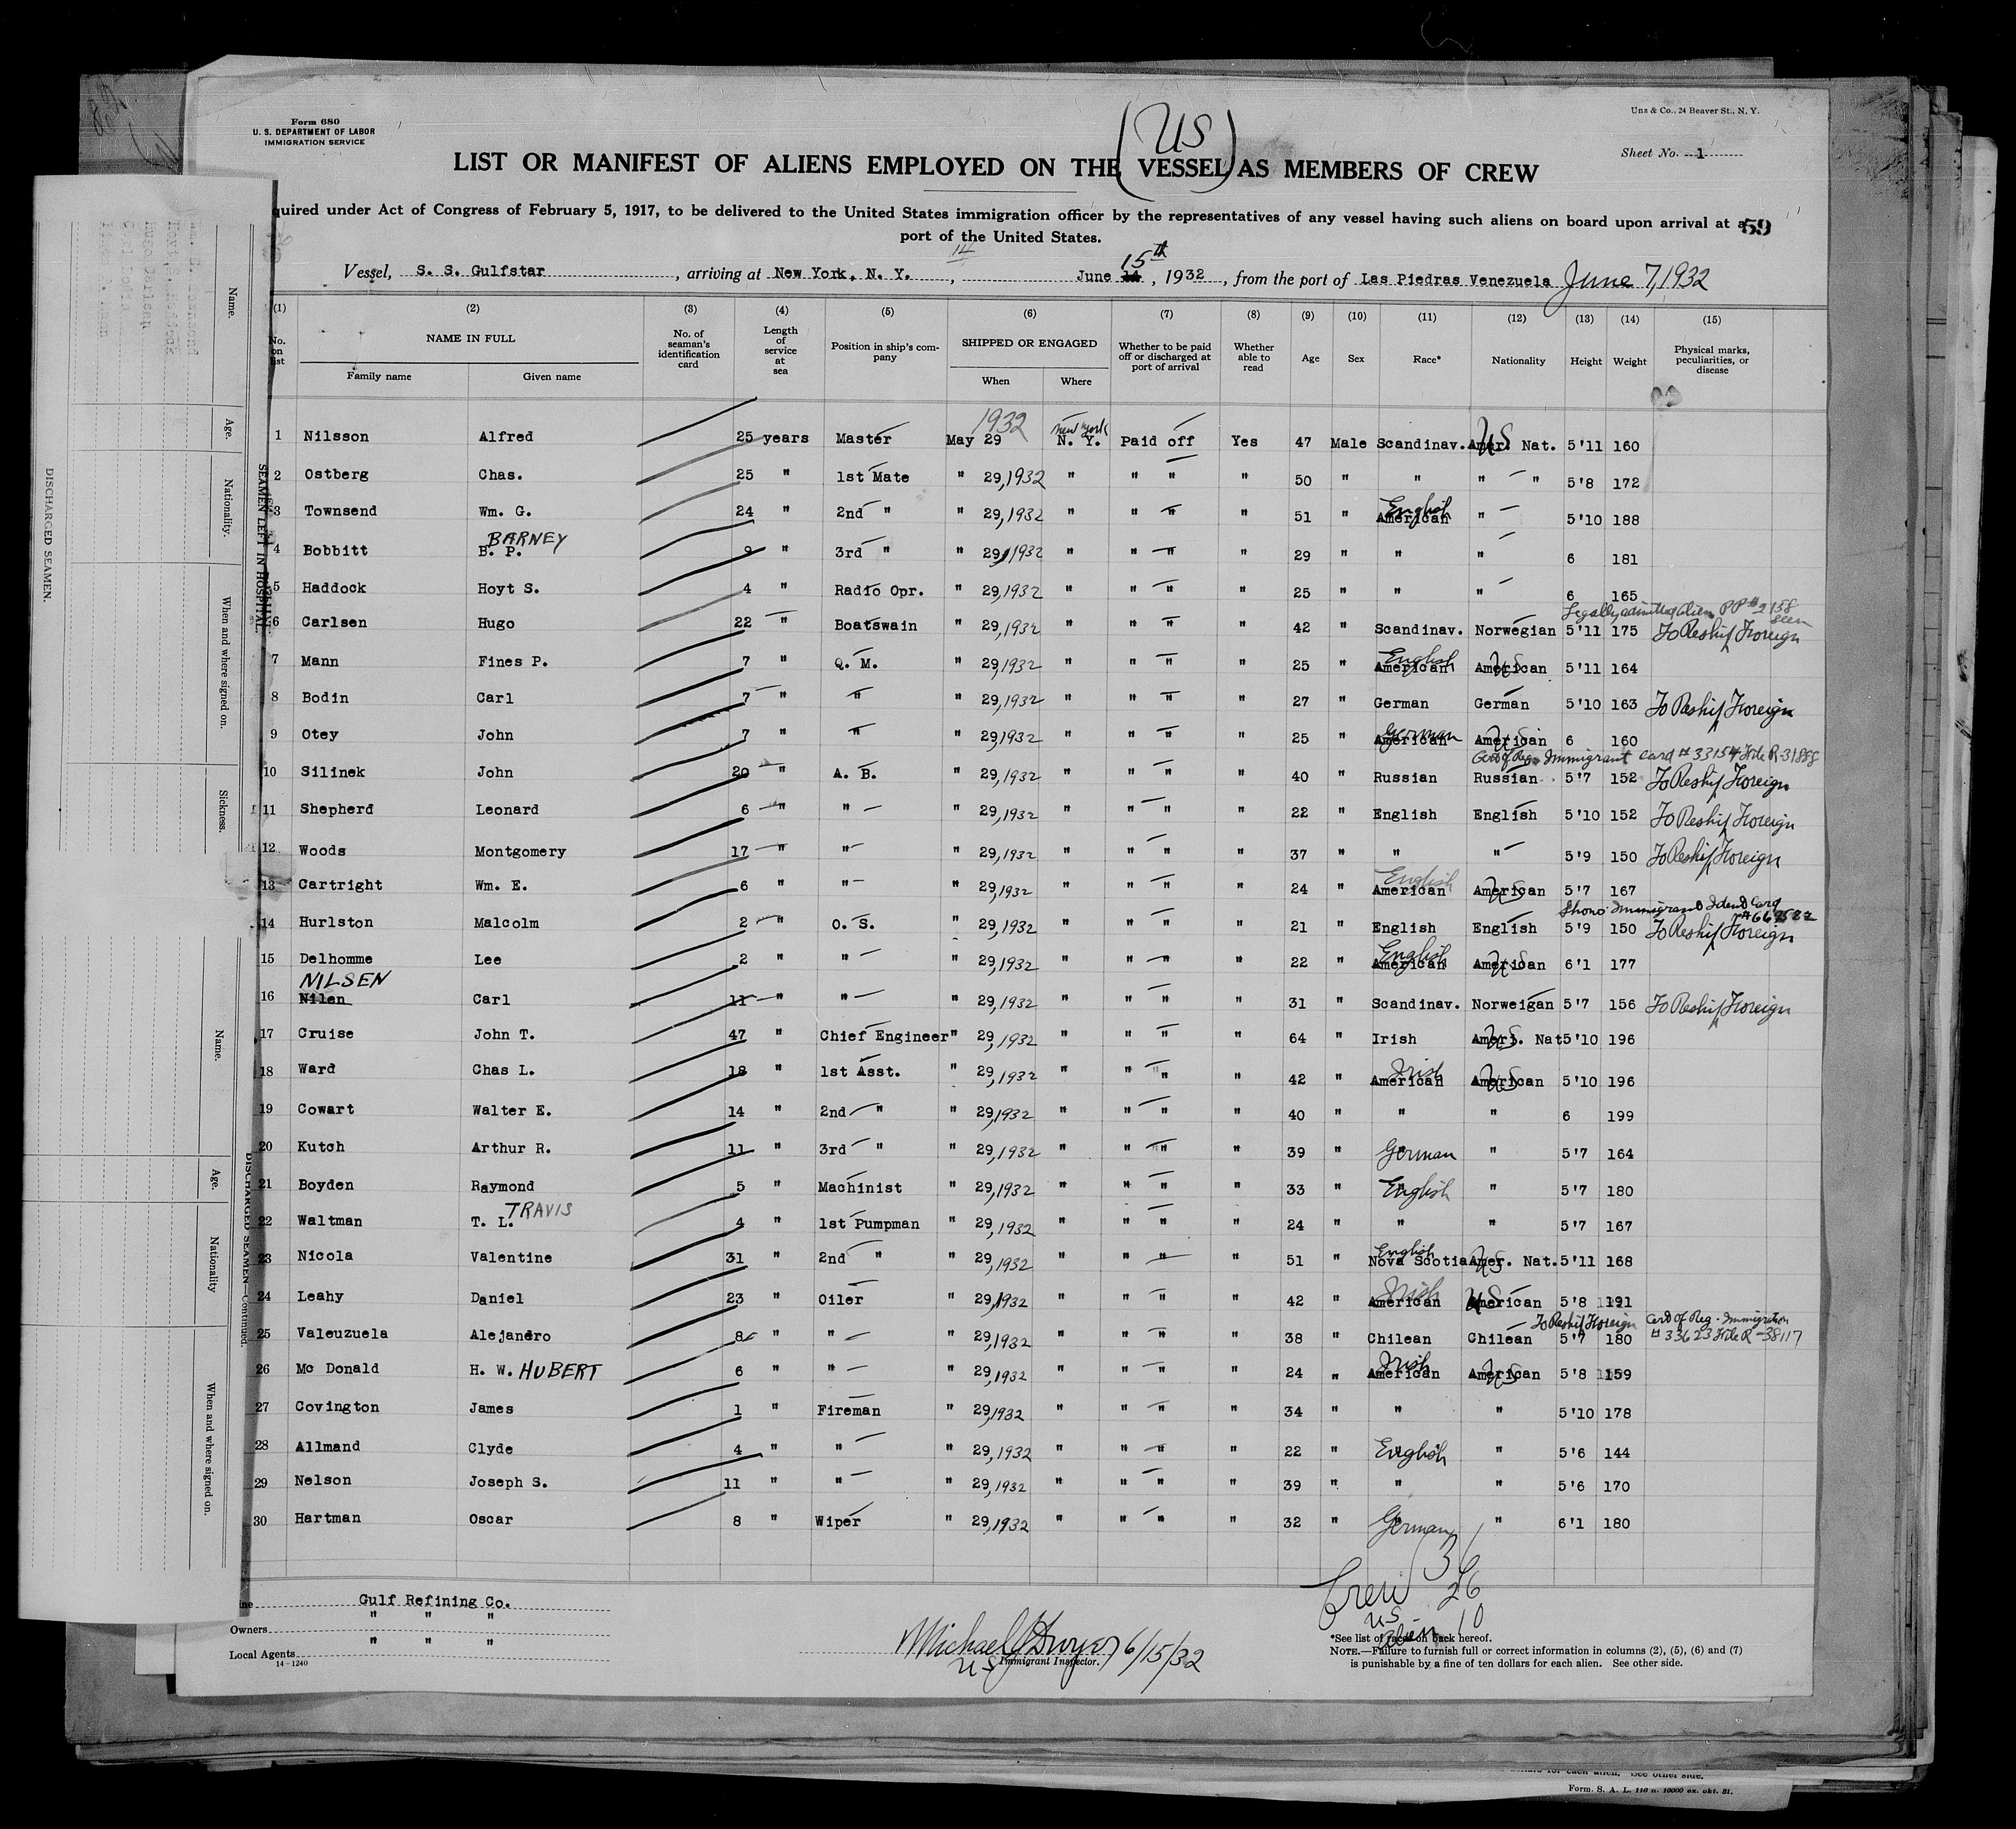 Form 680
U. S. DEPARTMENT OF LABOR
IMMIGRATION SERVICE
Uns & Co., 24 Beaver St., N. Y.
(US)
Sheet No. 1
LIST OR MANIFEST OF ALIENS EMPLOYED ON THE VESSEL AS MEMBERS OF CREW
quired under Act of Congress of February 5, 1917, to be delivered to the United States immigration officer by the representatives of any vessel having such aliens on board upon arrival at a
port of the United States.
59
14 15th
Vessel, S. S. Gulfstar, arriving at New York, N. Y., June 14, 1932, from the port of Las Piedras Venezuela June 7, 1932
(1) (2) (3) (4) (5) (6) (7) (8) (9) (10) (11) (12) (13) (14) (15)
No. on list NAME IN FULL Family name Given name No. of seaman's identification card Length of service at sea Position in ship's company SHIPPED OR ENGAGED When Where Whether to be paid off or discharged at port of arrival Whether able to read Age Sex Race* Nationality Height Weight Physical marks, peculiarities, or disease
1932 New York US
1 Nilsson Alfred 25 years Master May 29 N. Y. Paid off Yes 47 Male Scandinav. Amer. Nat. 5'11 160
2 Ostberg Chas. 25 " 1st Mate " 29,1932 " " " " 50 " " " " 5'8 172
English
3 Townsend Wm. G. 24 " 2nd " " 29,1932 " " " " 51 " American " 5'10 188
BARNEY
4 Bobbitt B. P. 9 " 3rd " " 29,1932 " " " " 29 " " " 6 181
5 Haddock Hoyt S. 4 " Radio Opr. " 29,1932 " " " " 25 " " " 6 165
Legally admitted alien PP # 2158 seen
6 Carlsen Hugo 22 " Boatswain " 29,1932 " " " " 42 " Scandinav. Norwegian 5'11 175 To Reship Foreign
English US
7 Mann Fines P. 7 " Q. M. " 29,1932 " " " " 25 " American American 5'11 164
8 Bodin Carl 7 " " " 29,1932 " " " " 27 " German German 5'10 163 To Reship Foreign
German US
9 Otey John 7 " " " 29,1932 " " " " 25 " American American 6 160
Cert of Reg. Immigrant Card # 33154 File R-31888
10 Silinek John 20 " A. B. " 29,1932 " " " " 40 " Russian Russian 5'7 152 To Reship Foreign
11 Shepherd Leonard 6 " " " 29,1932 " " " " 22 " English English 5'10 152 To Reship Foreign
12 Woods Montgomery 17 " " " 29,1932 " " " " 37 " " " 5'9 150 To Reship Foreign
English US
13 Cartright Wm. E. 6 " " " 29,1932 " " " " 24 " American American 5'7 167
Shows Immigrant Ident Card
14 Hurlston Malcolm 2 " O. S. " 29,1932 " " " " 21 " English English 5'9 150 To Reship Foreign
English US
15 Delhomme Lee 2 " " " 29,1932 " " " " 22 " American American 6'1 177
NILSEN
16 Nilen Carl 11 " " " 29,1932 " " " " 31 " Scandinav. Norweigan 5'7 156 To Reship Foreign
US
17 Cruise John T. 47 " Chief Engineer " 29,1932 " " " " 64 " Irish Ameri. Nat 5'10 196
Irish US
18 Ward Chas L. 18 " 1st Asst. " 29,1932 " " " " 42 " American American 5'10 196
19 Cowart Walter E. 14 " 2nd " " 29,1932 " " " " 40 " " " 6 199
20 Kutch Arthur R. 11 " 3rd " " 29,1932 " " " " 39 " German " 5'7 164
21 Boyden Raymond 5 " Machinist " 29,1932 " " " " 33 " English " 5'7 180
TRAVIS
22 Waltman T. L. 4 " 1st Pumpman " 29,1932 " " " " 24 " " " 5'7 167
English US
23 Nicola Valentine 31 " 2nd " " 29,1932 " " " " 51 " Nova Scotia Amer. Nat. 5'11 168
Irish US
24 Leahy Daniel 23 " Oiler " 29,1932 " " " " 42 " American American 5'8 191
To Reship Foreign Cert of Reg. Immigration
25 Valeuzuela Alejandro 8 " " " 29,1932 " " " " 38 " Chilean Chilean 5'7 180 # 33623 File R-38117
Irish US
26 Mc Donald H. W. HUBERT 6 " " " 29,1932 " " " " 24 " American American 5'8 159
27 Covington James 1 " Fireman " 29,1932 " " " " 34 " " " 5'10 178
28 Allmand Clyde 4 " " " 29,1932 " " " " 22 " English " 5'6 144
29 Nelson Joseph S. 11 " " " 29,1932 " " " " 39 " " " 5'6 170
30 Hartman Oscar 8 " Wiper " 29,1932 " " " " 32 " German " 6'1 180
36
Crew 26
US
alien 10
ine Gulf Refining Co.
Owners " " "
Local Agents " " "
14-1240
Michael J Dwyer 6/15/32
US Immigrant Inspector.
*See list of races on back hereof.
NOTE.—Failure to furnish full or correct information in columns (2), (5), (6) and (7)
is punishable by a fine of ten dollars for each alien. See other side.
Form. S. A. L. 116 n. 10000 ex. okt. 31.
DISCHARGED SEAMEN.
SEAMEN LEFT IN HOSPITAL
Name.
Age.
Nationality.
When and where signed on.
Sickness.
DISCHARGED SEAMEN—Continued.
Name.
Age.
Nationality
When and where signed on.